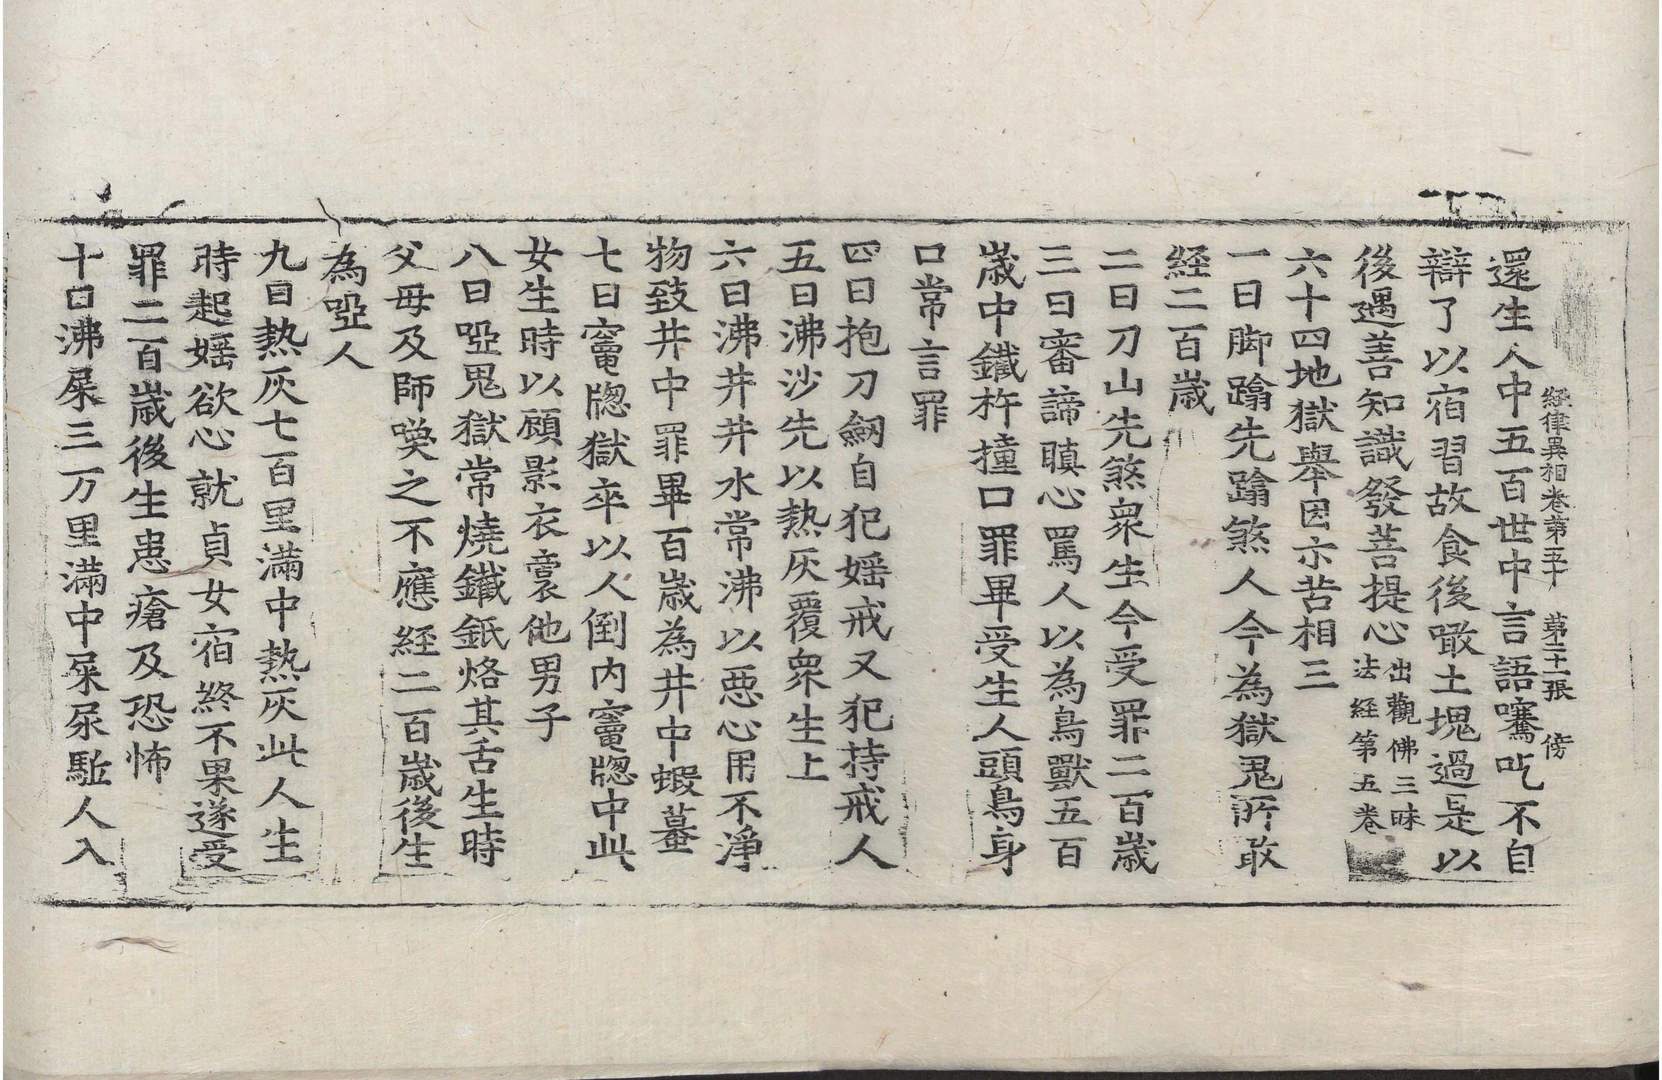 經律異相卷第五十 第二十一張 傍
還生人中五百世中言語謇吃不自
辯了以宿習故食後噉土塊過是以
後遇善知識發菩提心出觀佛三昧法經第五卷
六十四地獄舉因示苦相三
一曰脚蹹先蹹煞人今為獄鬼所敢
経二百歲
二曰刀山先煞衆生今受罪二百歲
三曰審諦瞋心罵人以為鳥獸五百
歲中鐵杵撞口罪畢受生人頭鳥身
口常言罪
四曰抱刀劒自犯婬戒又犯持戒人
五曰沸沙先以熱灰覆衆生上
六曰沸井井水常沸以惡心用不淨
物致井中罪畢百歲為井中蝦蟇
七曰竈牎獄卒以人倒内竈牎中此
女生時以顧影衣裳他男子
八曰啞鬼獄常燒鐵鈱烙其舌生時
父母及師喚之不應経二百歲後生
為啞人
九曰熱灰七百里滿中熱灰此人生
時起婬欲心就貞女宿終不果遂受
罪二百歲後生患瘡及恐怖
十曰沸屎三万里滿中屎尿駈人入